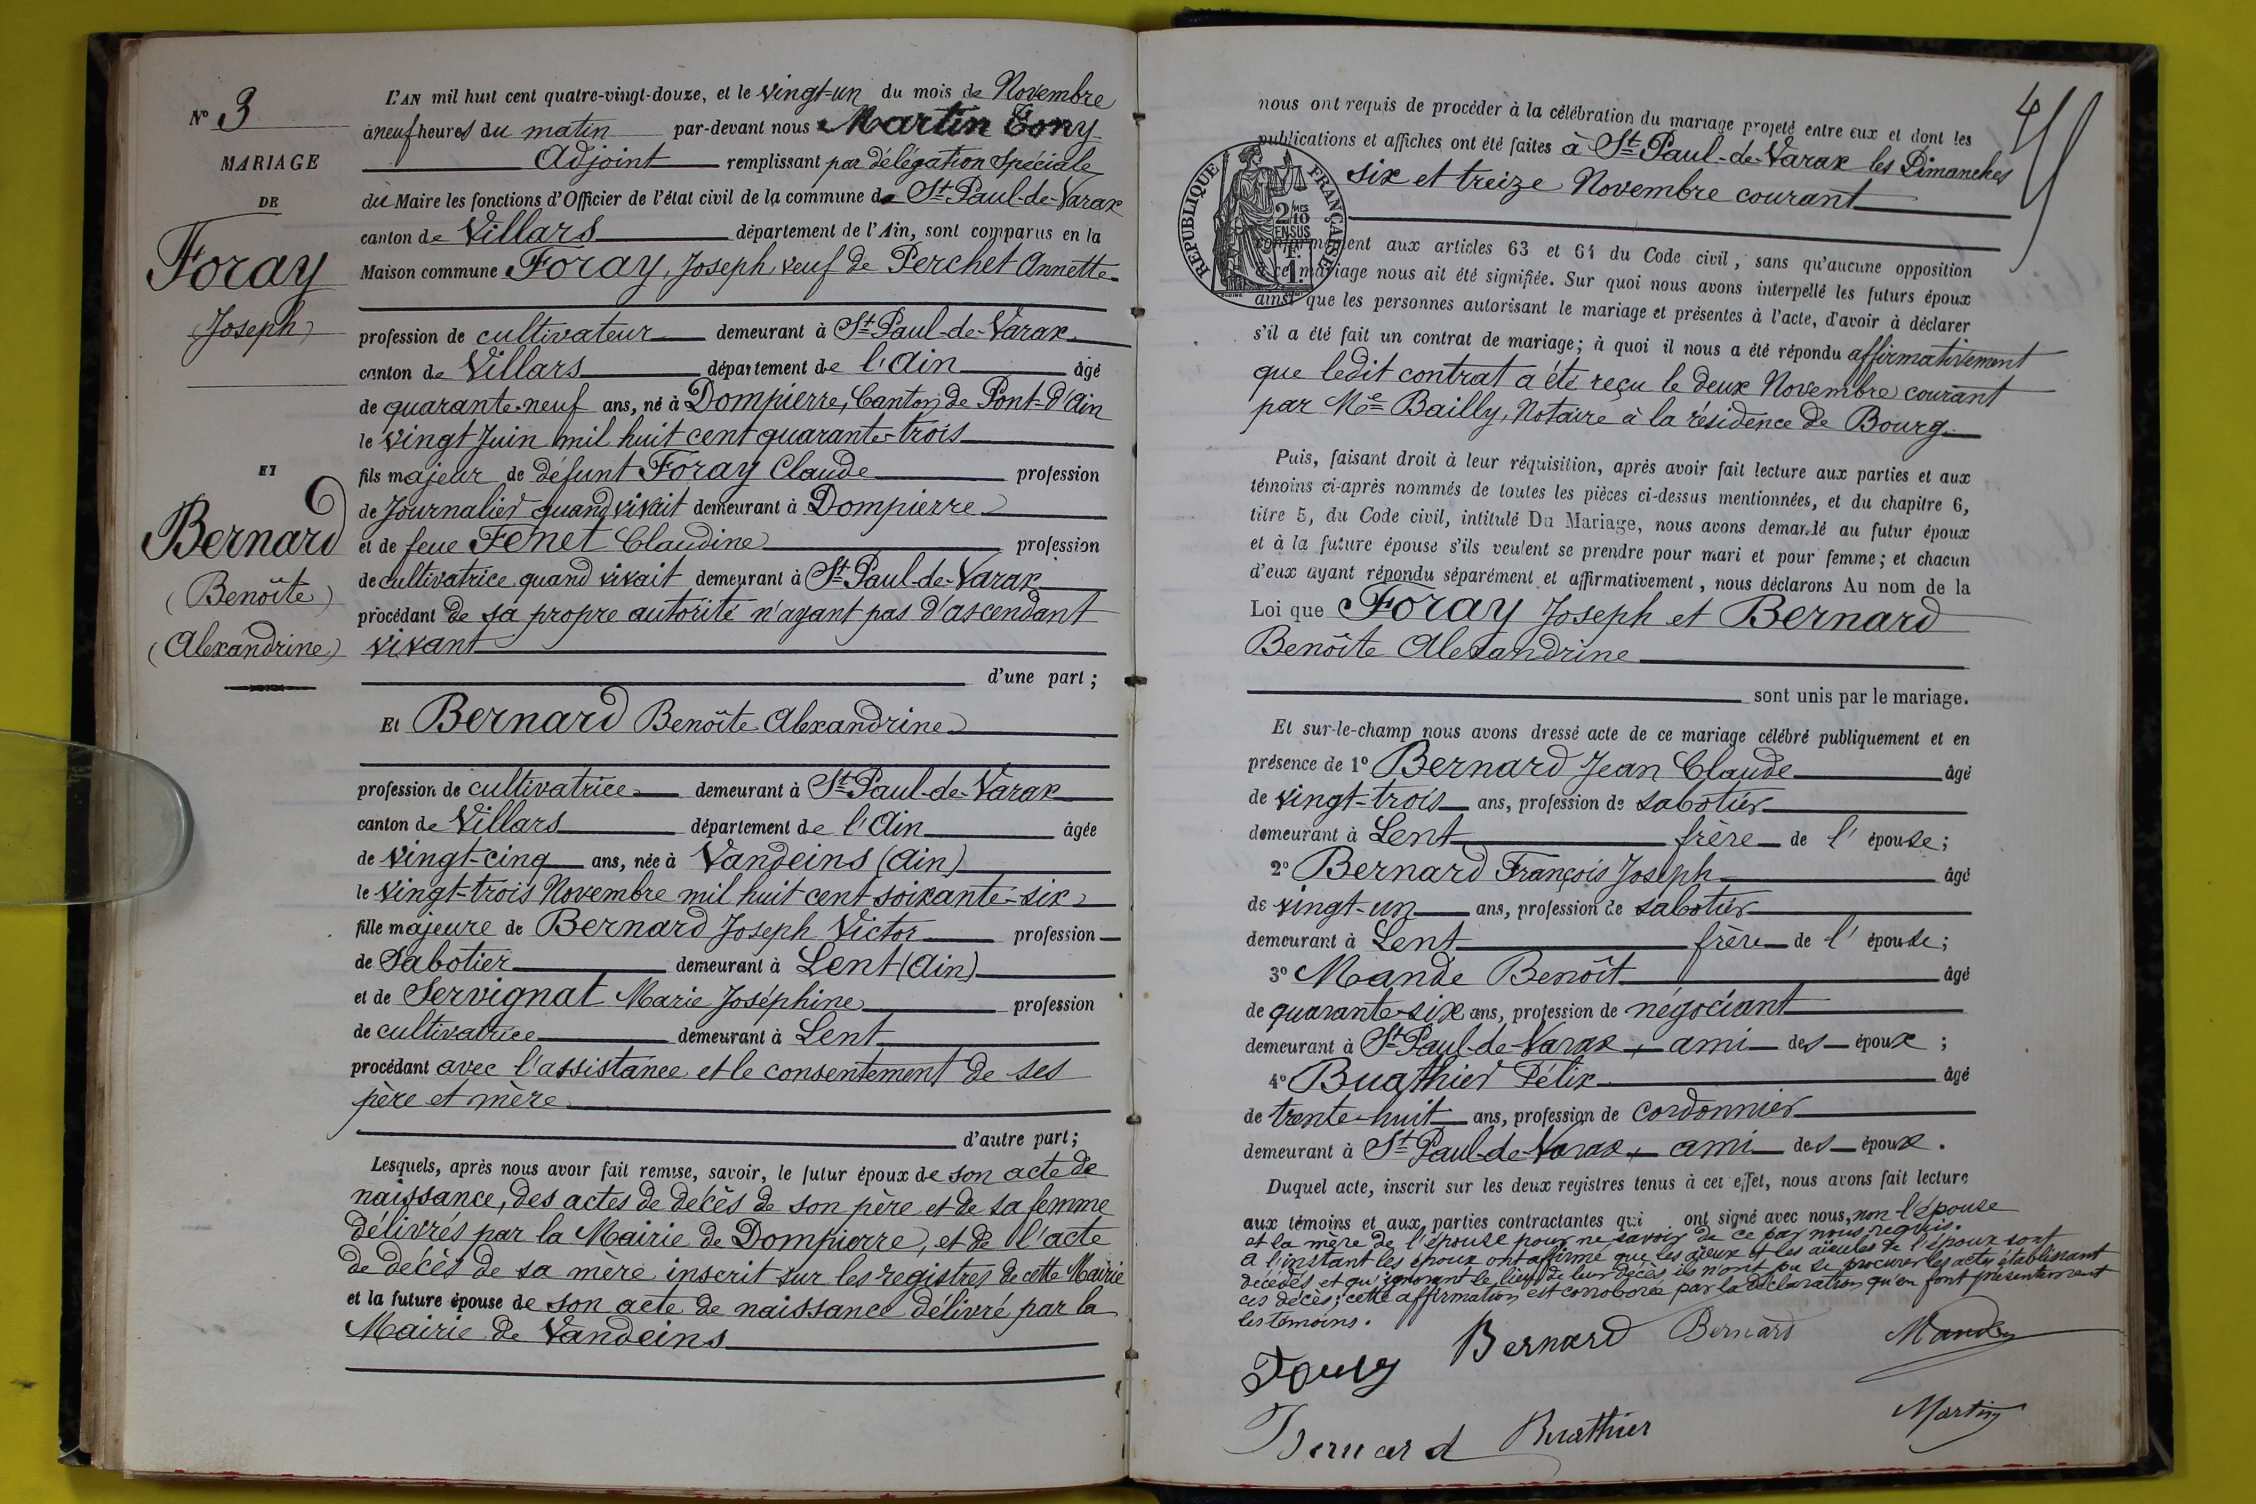 N° 3
MARIAGE
DE
Foray
(Joseph)
ET
Bernard
(Benoîte)
(Alexandrine)
L'AN mil huit cent quatre-vingt-douze, et le vingt-un du mois de Novembre
à neuf heures du matin par-devant nous Martin Tony
Adjoint remplissant par délégation spéciale
du Maire les fonctions d'Officier de l'état civil de la commune de St Paul-de-Varax
canton de Villars département de l'Ain, sont comparus en la
Maison commune Foray, Joseph, veuf de Perchet Annette
profession de cultivateur demeurant à St Paul-de-Varax
canton de Villars département de l'Ain âgé
de quarante-neuf ans, né à Dompierre, Canton de Pont-d'Ain
le vingt Juin mil huit cent quarante-trois
fils majeur de défunt Foray Claude profession
de Journalier quand vivait demeurant à Dompierre
et de feue Fenet Claudine profession
de cultivatrice quand vivait demeurant à St Paul-de-Varax
procédant de sa propre autorité n'ayant pas d'ascendant
vivant
d'une part ;
Et Bernard Benoîte Alexandrine
profession de cultivatrice demeurant à St Paul-de-Varax
canton de Villars département de l'Ain âgée
de vingt-cinq ans, née à Vandeins (Ain)
le vingt-trois Novembre mil huit cent soixante-six
fille majeure de Bernard Joseph Victor profession
de Sabotier demeurant à Lent (Ain)
et de Servignat Marie Joséphine profession
de cultivatrice demeurant à Lent
procédant avec l'assistance et le consentement de ses
père et mère
d'autre part ;
Lesquels, après nous avoir fait remise, savoir, le futur époux de son acte de
naissance, des actes de décès de son père et de sa femme
délivrés par la Mairie de Dompierre, et de l'acte
de décès de sa mère inscrit sur les registres de cette Mairie
et la future épouse de son acte de naissance délivré par la
Mairie de Vandeins
nous ont requis de procéder à la célébration du mariage projeté entre eux et dont les
publications et affiches ont été faites à St Paul-de-Varax les Dimanches
six et treize Novembre courant
RÉPUBLIQUE FRANÇAISE
2 MES
10
EN SUS
T.
1.
conformément aux articles 63 et 64 du Code civil, sans qu'aucune opposition
à ce mariage nous ait été signifiée. Sur quoi nous avons interpellé les futurs époux
ainsi que les personnes autorisant le mariage et présentes à l'acte, d'avoir à déclarer
s'il a été fait un contrat de mariage ; à quoi il nous a été répondu affirmativement
que ledit contrat a été reçu le deux Novembre courant
par Me Bailly, Notaire à la résidence de Bourg
Puis, faisant droit à leur réquisition, après avoir fait lecture aux parties et aux
témoins ci-après nommés de toutes les pièces ci-dessus mentionnées, et du chapitre 6,
titre 5, du Code civil, intitulé Du Mariage, nous avons demandé au futur époux
et à la future épouse s'ils veulent se prendre pour mari et pour femme ; et chacun
d'eux ayant répondu séparément et affirmativement, nous déclarons Au nom de la
Loi que Foray Joseph et Bernard
Benoîte Alexandrine
sont unis par le mariage.
Et sur-le-champ nous avons dressé acte de ce mariage célébré publiquement et en
présence de 1° Bernard Jean Claude âgé
de vingt-trois ans, profession de sabotier
demeurant à Lent frère de l'épouse ;
2° Bernard François Joseph âgé
de vingt-un ans, profession de sabotier
demeurant à Lent frère de l'épouse ;
3° Mande Benoît âgé
de quarante-six ans, profession de négociant
demeurant à St Paul-de-Varax, ami des époux ;
4° Buathier Félix âgé
de trente-huit ans, profession de cordonnier
demeurant à St Paul-de-Varax, ami des époux.
Duquel acte, inscrit sur les deux registres tenus à cet effet, nous avons fait lecture
aux témoins et aux parties contractantes qui ont signé avec nous, non l'épouse
et la mère de l'épouse pour ne savoir de ce par nous requis.
A l'instant les époux ont affirmé que les aïeux et les aïeules de l'époux sont
décédés et qu'ignorant le lieu de leur décès, ils n'ont pu se procurer les actes établissant
ces décès ; cette affirmation est corroborée par la déclaration qu'en font présentement
les témoins.
Foray Bernard Bernard Mande
Bernard Buathier Martin